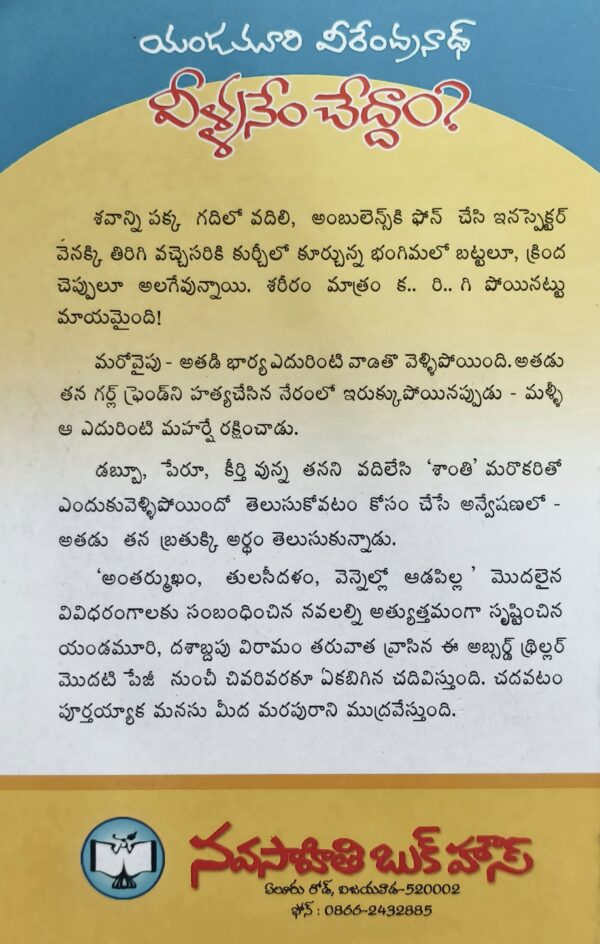 యండమూరి వీరేంద్రనాథ్
వీళ్ళనేం చేద్దాం?
శవాన్ని పక్క గదిలో వదిలి, అంబులెన్స్‌కి ఫోన్ చేసి ఇనస్పెక్టర్
వెనక్కి తిరిగి వచ్చెసరికి కుర్చీలో కూర్చున్న భంగిమలో బట్టలూ, క్రింద
చెప్పులూ అలగేవున్నాయి. శరీరం మాత్రం క.. రి.. గి పోయినట్టు
మాయమైంది!
మరోవైపు - అతడి భార్య ఎదురింటి వాడితొ వెళ్ళిపోయింది. అతడు
తన గర్ల్ ఫ్రెండ్‌ని హత్యచేసిన నేరంలో ఇరుక్కుపోయినప్పుడు - మళ్ళీ
ఆ ఎదురింటి మహర్షే రక్షించాడు.
డబ్బూ, పేరూ, కీర్తి వున్న తనని వదిలేసి ‘శాంతి’ మరొకరితో
ఎందుకువెళ్ళిపోయిందో తెలుసుకోవటం కోసం చేసే అన్వేషణలో -
అతడు తన బ్రతుక్కి అర్థం తెలుసుకున్నాడు.
‘అంతర్ముఖం, తులసీదళం, వెన్నెల్లో ఆడపిల్ల ’ మొదలైన
వివిధరంగాలకు సంబంధించిన నవలల్ని అత్యుత్తమంగా సృష్టించిన
యండమూరి, దశాబ్దపు విరామం తరువాత వ్రాసిన ఈ అబ్సర్డ్ థ్రిల్లర్
మొదటి పేజీ నుంచీ చివరివరకూ ఏకబిగిన చదివిస్తుంది. చదవటం
పూర్తయ్యాక మనసు మీద మరపురాని ముద్రవేస్తుంది.
నవసాహితి బుక్ హౌస్
ఏలూరు రోడ్, విజయవాడ-520002
ఫోన్ : 0866-2432885